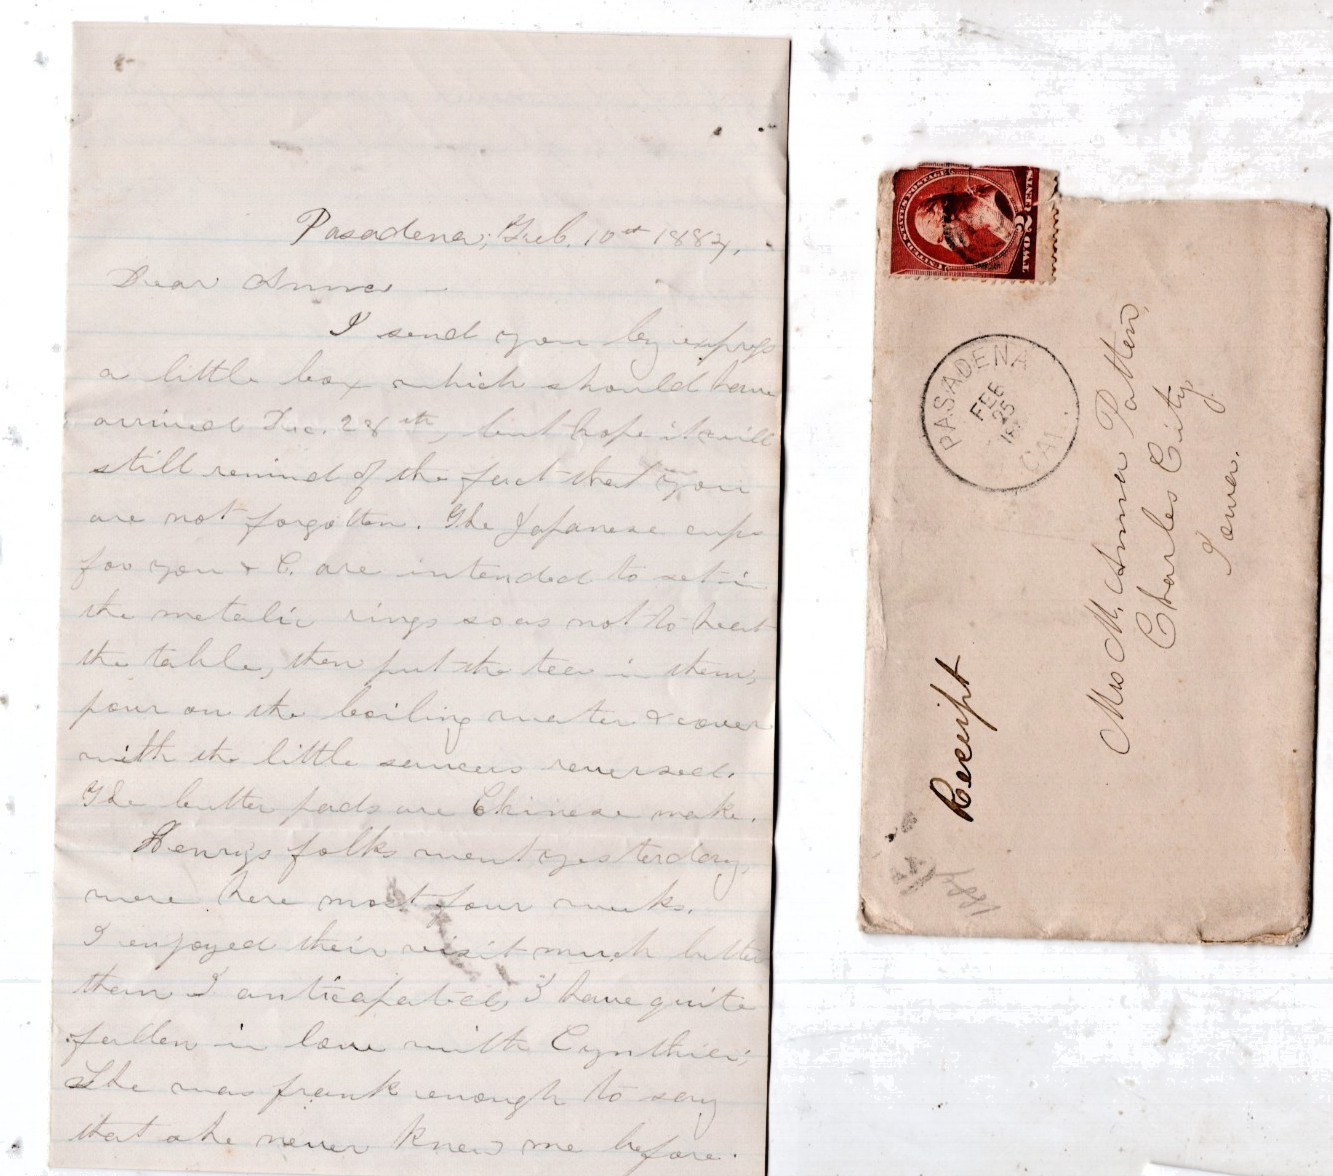 Pasadena, Feb. 10th 1884,
Dear Anna
I send you by express
a little box which should have
arrived Dec. 28th, but hope it will
still remind of the fact that you
are not forgotten. The Japanese cups
for you & C. are intended to set in
the metalic rings so as not to heat
the table, then put the tea in them,
pour on the boiling water & cover
with the little saucers reversed.
The butter pads are Chinese make.
Henrys folks went yesterday,
were here most four weeks.
I enjoyed their visit much better
than I anticapated, I have quite
fallen in love with Cynthia;
She was frank enough to say
that she never knew me before.
UNITED STATES POSTAGE
TWO 2 CENTS
PASADENA
FEB
25
CAL.
Mrs M. Anna Patten,
Charles City,
Iowa.
Receipt
1884